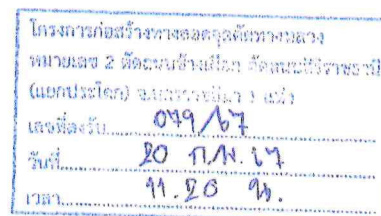 โครงการก่อสร้างทางลอดจุดตัดทางหลวง
หมายเลข 2 ตัดถนนช้างเผือก ตัดถนนสิริราชธานี
(แยกประโดก) จ.นครราชสีมา 1 แห่ง
เลขที่ลงรับ 079/67
วันที่ 20 ก.พ. 67
เวลา 11.20 น.